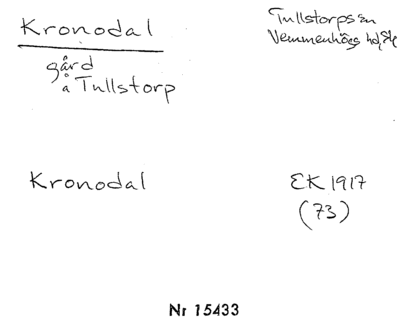 Kronodal
Tullstorps sn
Vemmenhögs hd, Sk
gård
å Tullstorp
Kronodal
EK 1917
(73)
Nr 15433